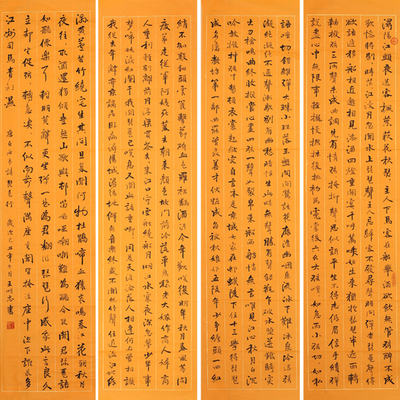 潯陽江頭夜送客楓葉荻花秋瑟瑟主人下馬客在船舉酒欲飲無管絃醉不成
歡慘將別別時茫茫江浸月忽聞水上琵琶聲主人忘歸客不發尋聲暗問彈者誰琵琶聲停
欲語遲移船相近邀相見添酒回燈重開宴千呼萬喚始出來猶抱琵琶半遮面轉
軸撥絃三兩聲未成曲調先有情絃絃掩抑聲聲思似訴平生不得志低眉信手續續
彈說盡心中無限事輕攏慢撚抹復挑初為霓裳後六幺大絃嘈嘈如急雨小絃切切如私
語嘈嘈切切錯雜彈大珠小珠落玉盤間關鶯語花底滑幽咽泉流冰下難冰泉冷澀絃
凝絕凝絕不通聲暫歇別有幽愁暗恨生此時無聲勝有聲銀瓶乍破水漿迸鐵騎突
出刀槍鳴曲終收撥當心畫四絃一聲如裂帛東船西舫悄無言唯見江心秋月白沉
吟放撥插絃中整頓衣裳起斂容自言本是京城女家在蝦蟆陵下住十三學得琵琶
成名屬教坊第一部曲罷曾教善才服妝成每被秋娘妒五陵年少爭纏頭一曲紅
綃不知數鈿頭銀篦擊節碎血色羅裙翻酒污今年歡笑復明年秋月春風等閒
度弟走從軍阿姨死暮去朝來顏色故門前冷落車馬稀老大嫁作商人婦商人
重利輕別離前月浮梁買茶去去來江口守空船繞船月明江水寒夜深忽夢少年事
夢啼妝淚紅闌干我聞琵琶已歎息又聞此語重唧唧同是天涯淪落人相逢何必曾相識
我從去年辭帝京謫居臥病潯陽城潯陽地僻無音樂終歲不聞絲竹聲住近湓江地低
濕黃蘆苦竹繞宅生其間旦暮聞何物杜鵑啼血猿哀鳴春江花朝秋月
夜往往取酒還獨傾豈無山歌與村笛嘔啞嘲哳難為聽今夜聞君琵琶語
如聽仙樂耳暫明莫辭更坐彈一曲為君翻作琵琶行感我此言良久
立卻坐促絃絃轉急淒淒不似向前聲滿座重聞皆掩泣座中泣下誰最多
江州司馬青衫濕
唐白居易詩琵琶行